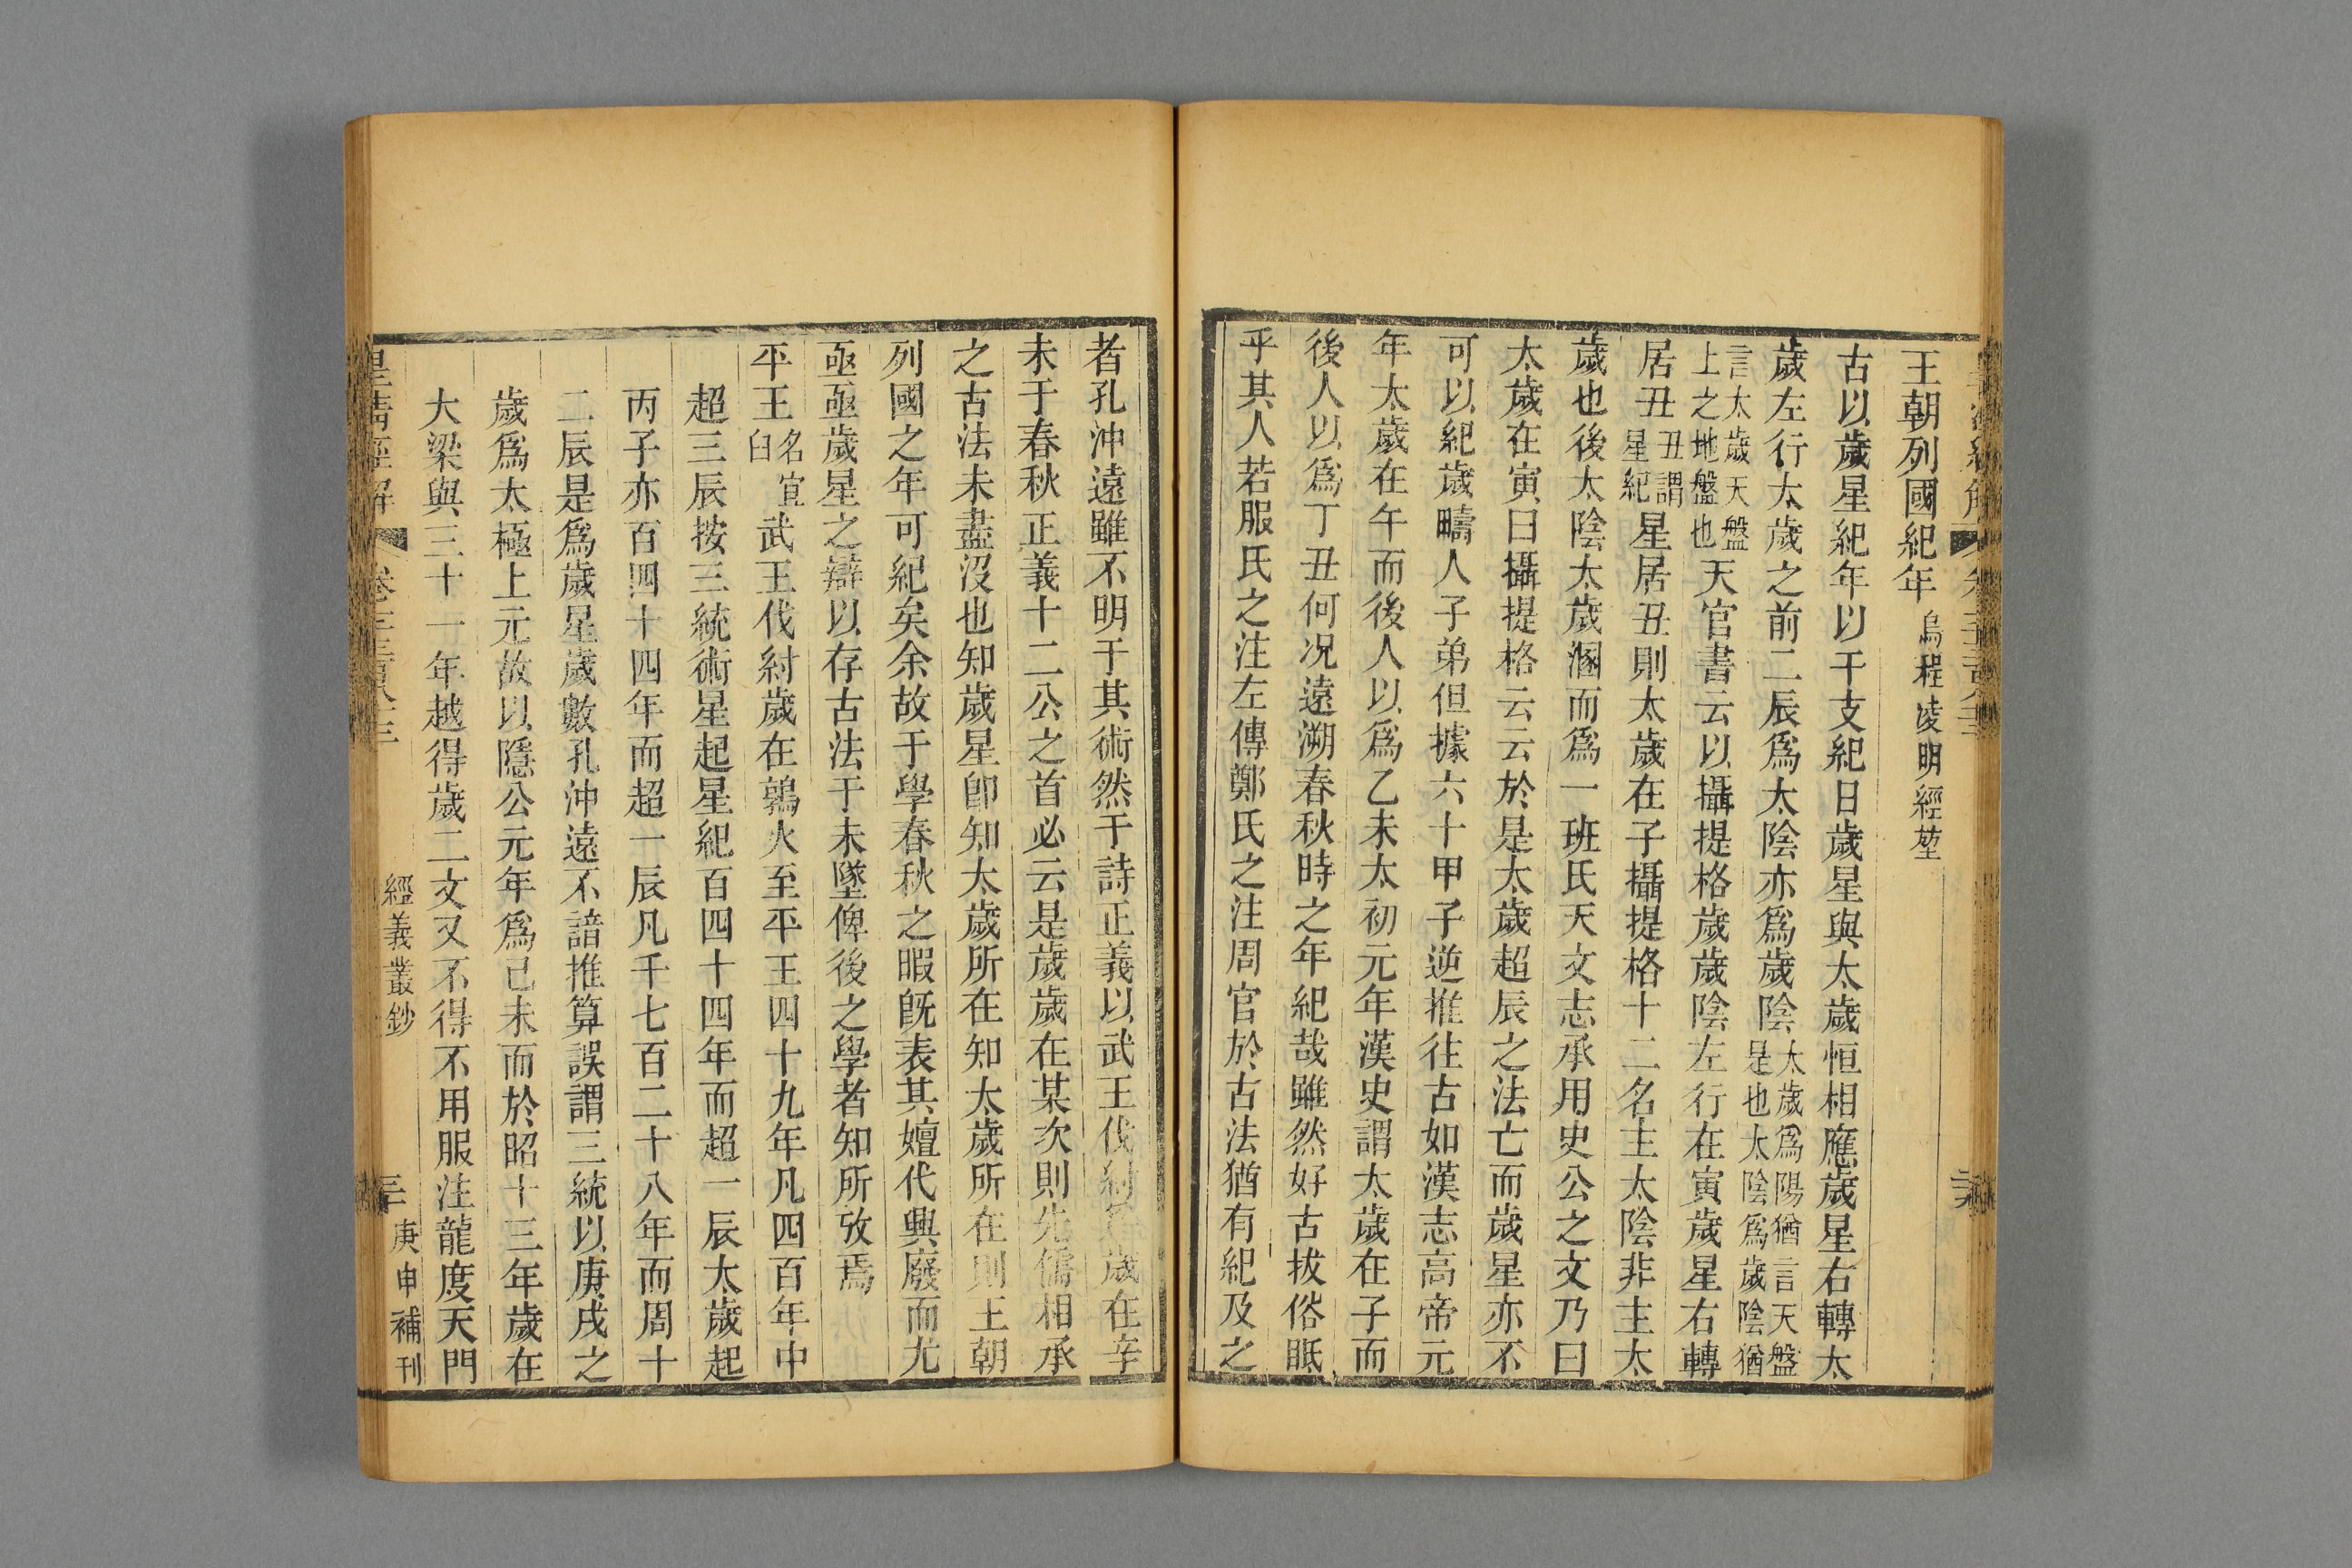 王朝列國紀年 烏程凌明經堃
古以歲星紀年以干支紀日歲星與太歲恒相應歲星右轉太
歲左行太歲之前二辰爲太陰亦爲歲陰太歲爲陽猶言天盤是也太陰爲歲陰猶
言太歲天盤上之地盤也天官書云以攝提格歲歲陰左行在寅歲星右轉
居丑丑謂星紀星居丑則太歲在子攝提格十二名主太陰非主太
歲也後太陰太歲溷而爲一班氏天文志承用史公之文乃曰
太歲在寅曰攝提格云云於是太歲超辰之法亡而歲星亦不
可以紀歲疇人子弟但據六十甲子逆推往古如漢志高帝元
年太歲在午而後人以爲乙未太初元年漢史謂太歲在子而
後人以爲丁丑何况遠溯春秋時之年紀哉雖然好古拔俗眂
乎其人若服氏之注左傳鄭氏之注周官於古法猶有紀及之
者孔沖遠雖不明于其術然于詩正義以武王伐紂歲在辛
未于春秋正義十二公之首必云是歲歲在某次則先儒相承
之古法未盡沒也知歲星卽知太歲所在知太歲所在則王朝
列國之年可紀矣余故于學春秋之暇旣表其嬗代興廢而尤
亟亟歲星之辯以存古法于未墜俾後之學者知所攷焉
平王名宜臼武王伐紂歲在鶉火至平王四十九年凡四百年中
超三辰按三統術星起星紀百四十四年而超一辰太歲起
丙子亦百四十四年而超一辰凡千七百二十八年而周十
二辰是爲歲星歲數孔沖遠不諳推算誤謂三統以庚戌之
歲爲太極上元故以隱公元年爲己未而於昭十三年歲在
大梁與三十一年越得歲二文又不得不用服注龍度天門
皇淸經解 卷 經義叢鈔 三 庚申補刊